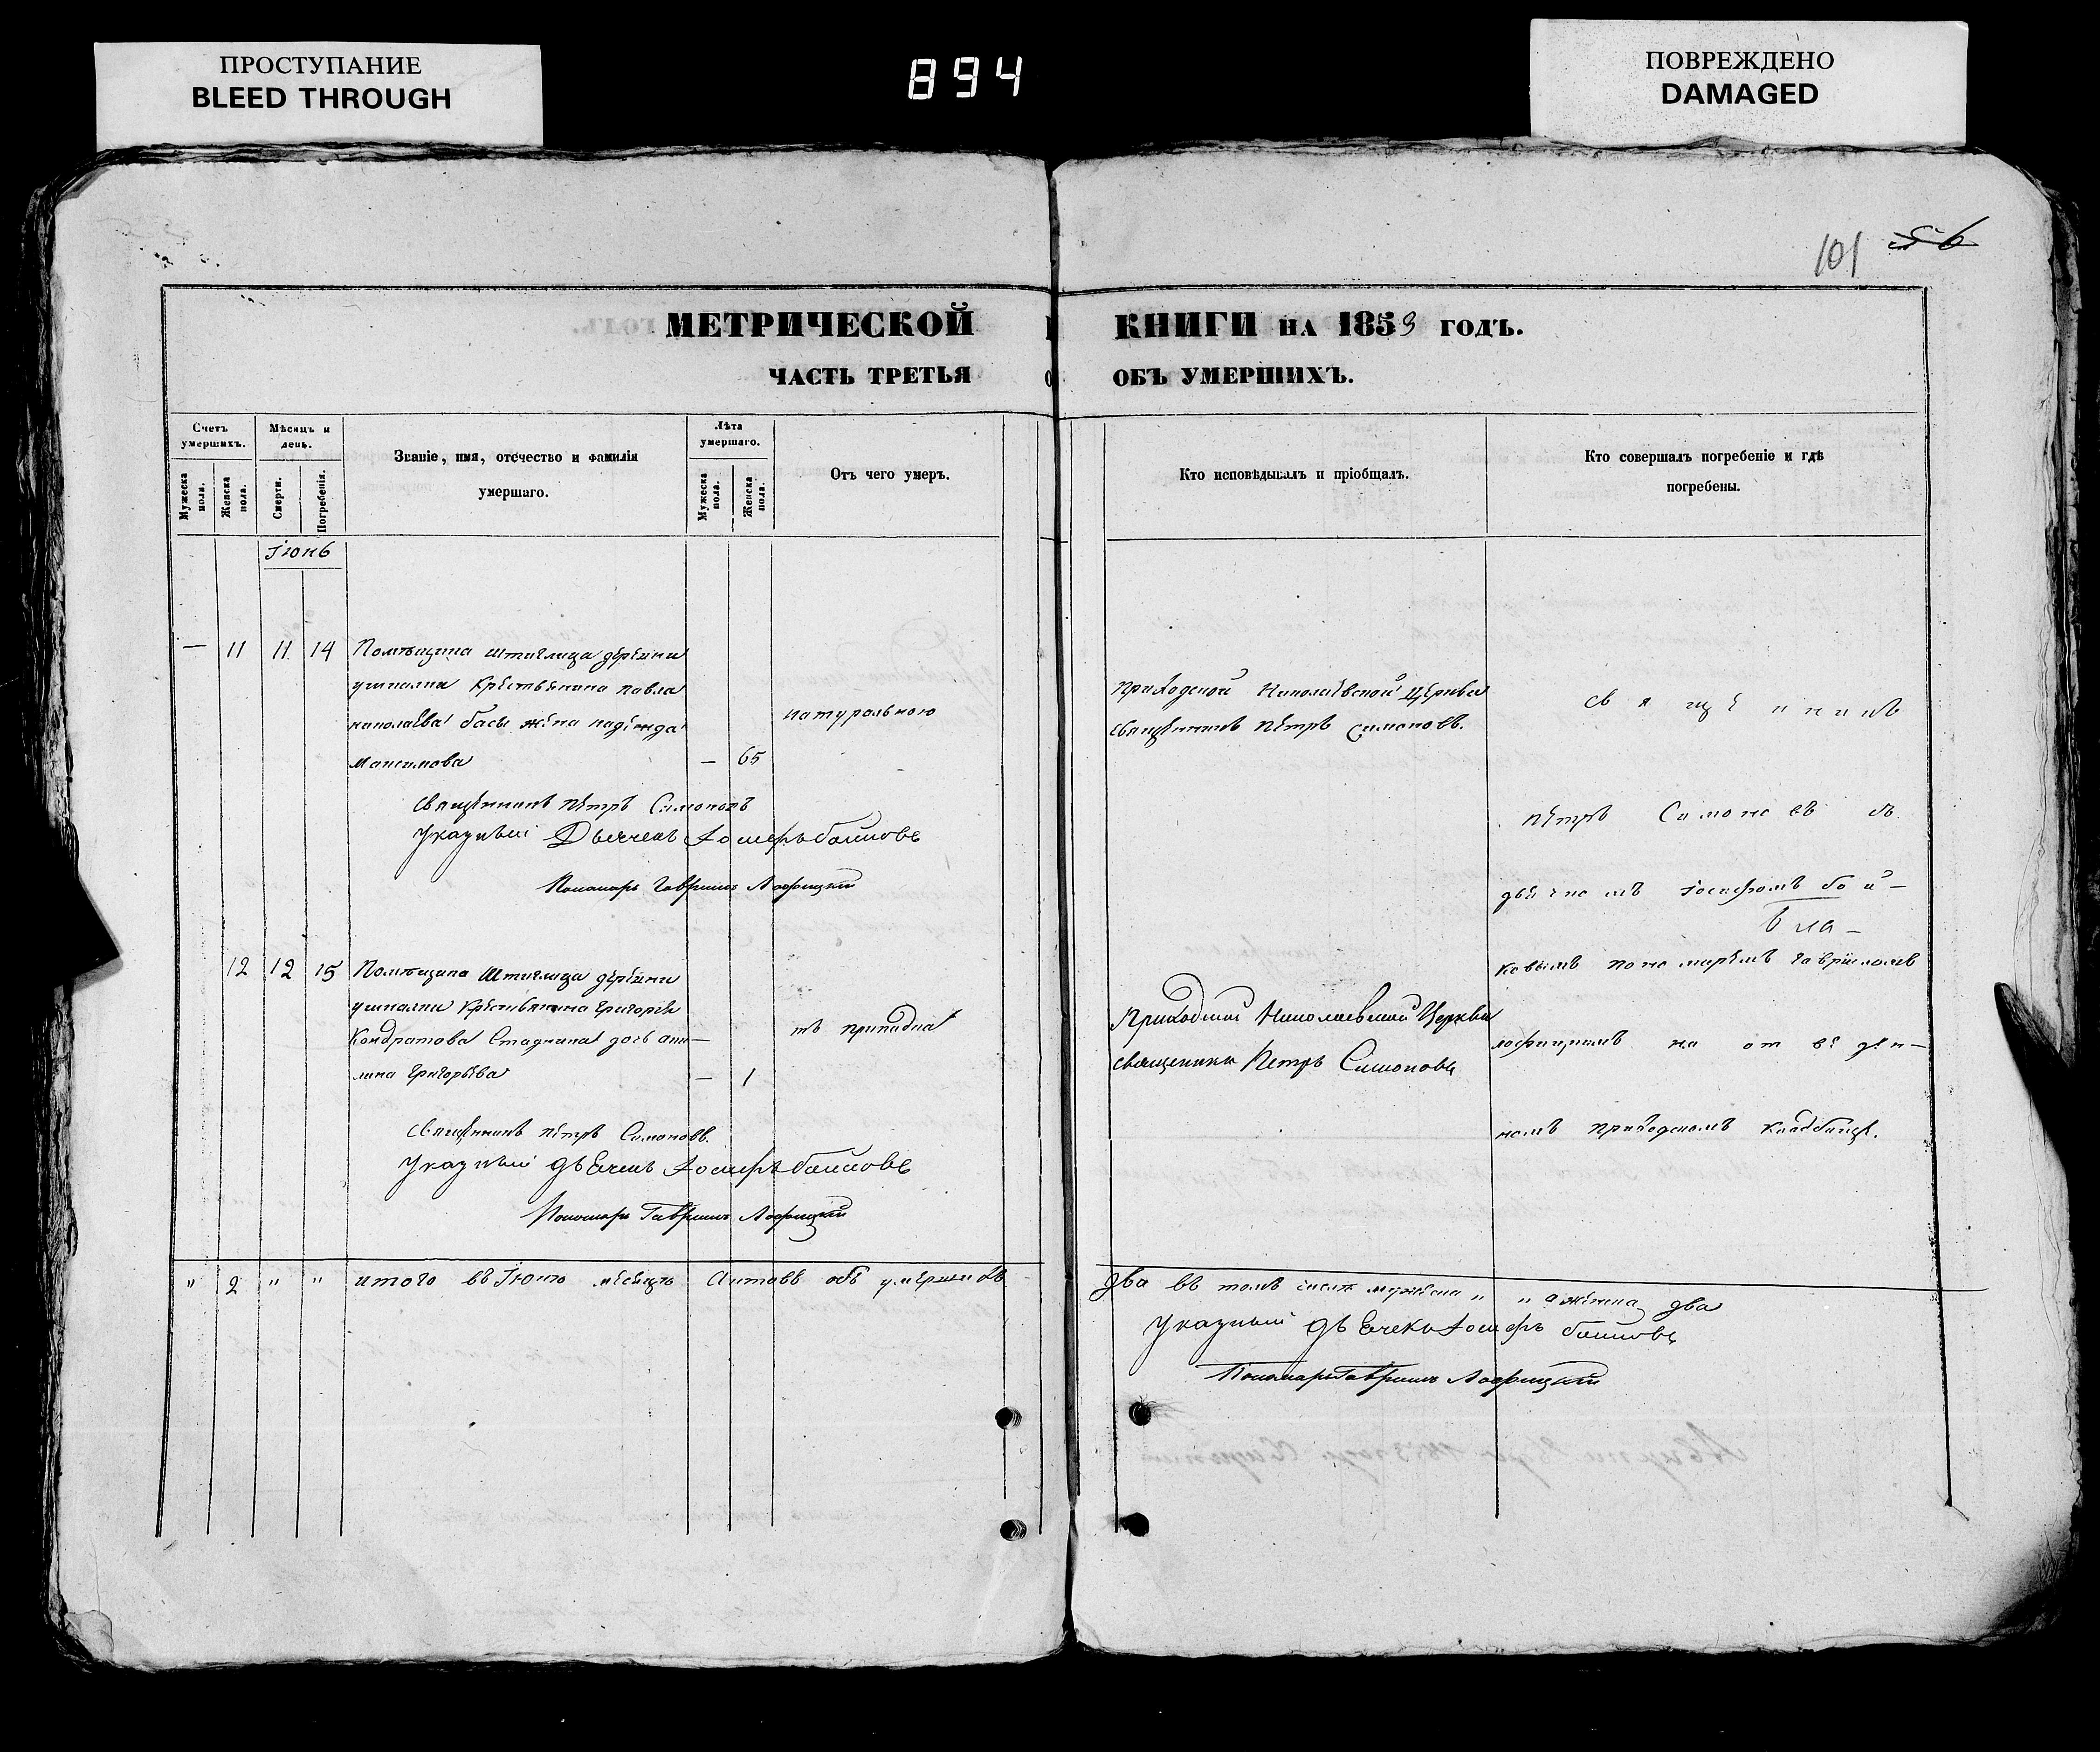 ПРОСТУПАНИЕ
BLEED THROUGH
894
ПОВРЕЖДЕНО
DAMAGED
101 56
МЕТРИЧЕСКОЙ
ЧАСТЬ ТРЕТЬЯ
Счетъ умершихъ.
Мужеска пола.
Женска пола.
Мѣсяцъ и день.
Смерти.
Погребенія.
Званіе, имя, отечество и фамилія
умершаго.
Лѣта умершаго.
Мужеска пола.
Женска пола.
Отъ чего умеръ.
Іюнь
— 11 11 14 Помѣщика Штиглица деревни
крестьянина павла
николаева басы жена надежда
натуральною
максимова — 65
священникъ петръ Симоновъ
Указный Дьячекъ Іосифъ бойковъ
Пономарь Гавріилъ Лофицкій
12 12 15 Помѣщика Штиглица деревни
крестьянина Григорія
Кондратова Стадника дочь аки—
припадка
лина Григорьева — 1
священникъ петръ Симоновъ
Указный дьячекъ Іосифъ бойковъ
Пономарь Гавріилъ Лофицкій
" 2 " " итого въ Іюнѣ месяцѣ актовъ объ умершихъ
КНИГИ НА 1853 ГОДЪ.
ОБЪ УМЕРШИХЪ.
Кто исповѣдывалъ и пріобщалъ.
Кто совершалъ погребеніе и гдѣ
погребены.
приходской Николаевской церкви
священникъ петръ симоновъ.
священникъ
петръ Симоновъ съ
дьячкомъ Іосифомъ бой—
ковымъ пономаремъ гавріиломъ
Приходской Николаевской Церкви
священникъ Петръ Симоновъ
лофицкимъ на отведен—
номъ приходскомъ кладбищѣ.
два въ томъ числѣ мужеска " " а женска два
Указный дьячекъ Іосифъ бойковъ
Пономарь Гавріилъ Лофицкій